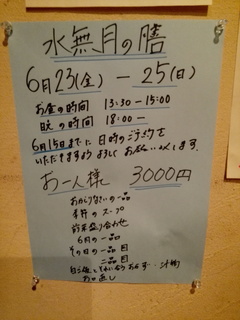 水無月の膳
6月23(金) — 25(日)
お昼の時間 13:30 - 15:00
晩の時間 18:00 —
6月15日までに日時のご予約を
いただきますよう よろしく お願いします。
お一人様 3000円
おからないの一品
季節のスープ
前菜盛り合わせ
6月の一品
その日の一品目
二品目
お口直し